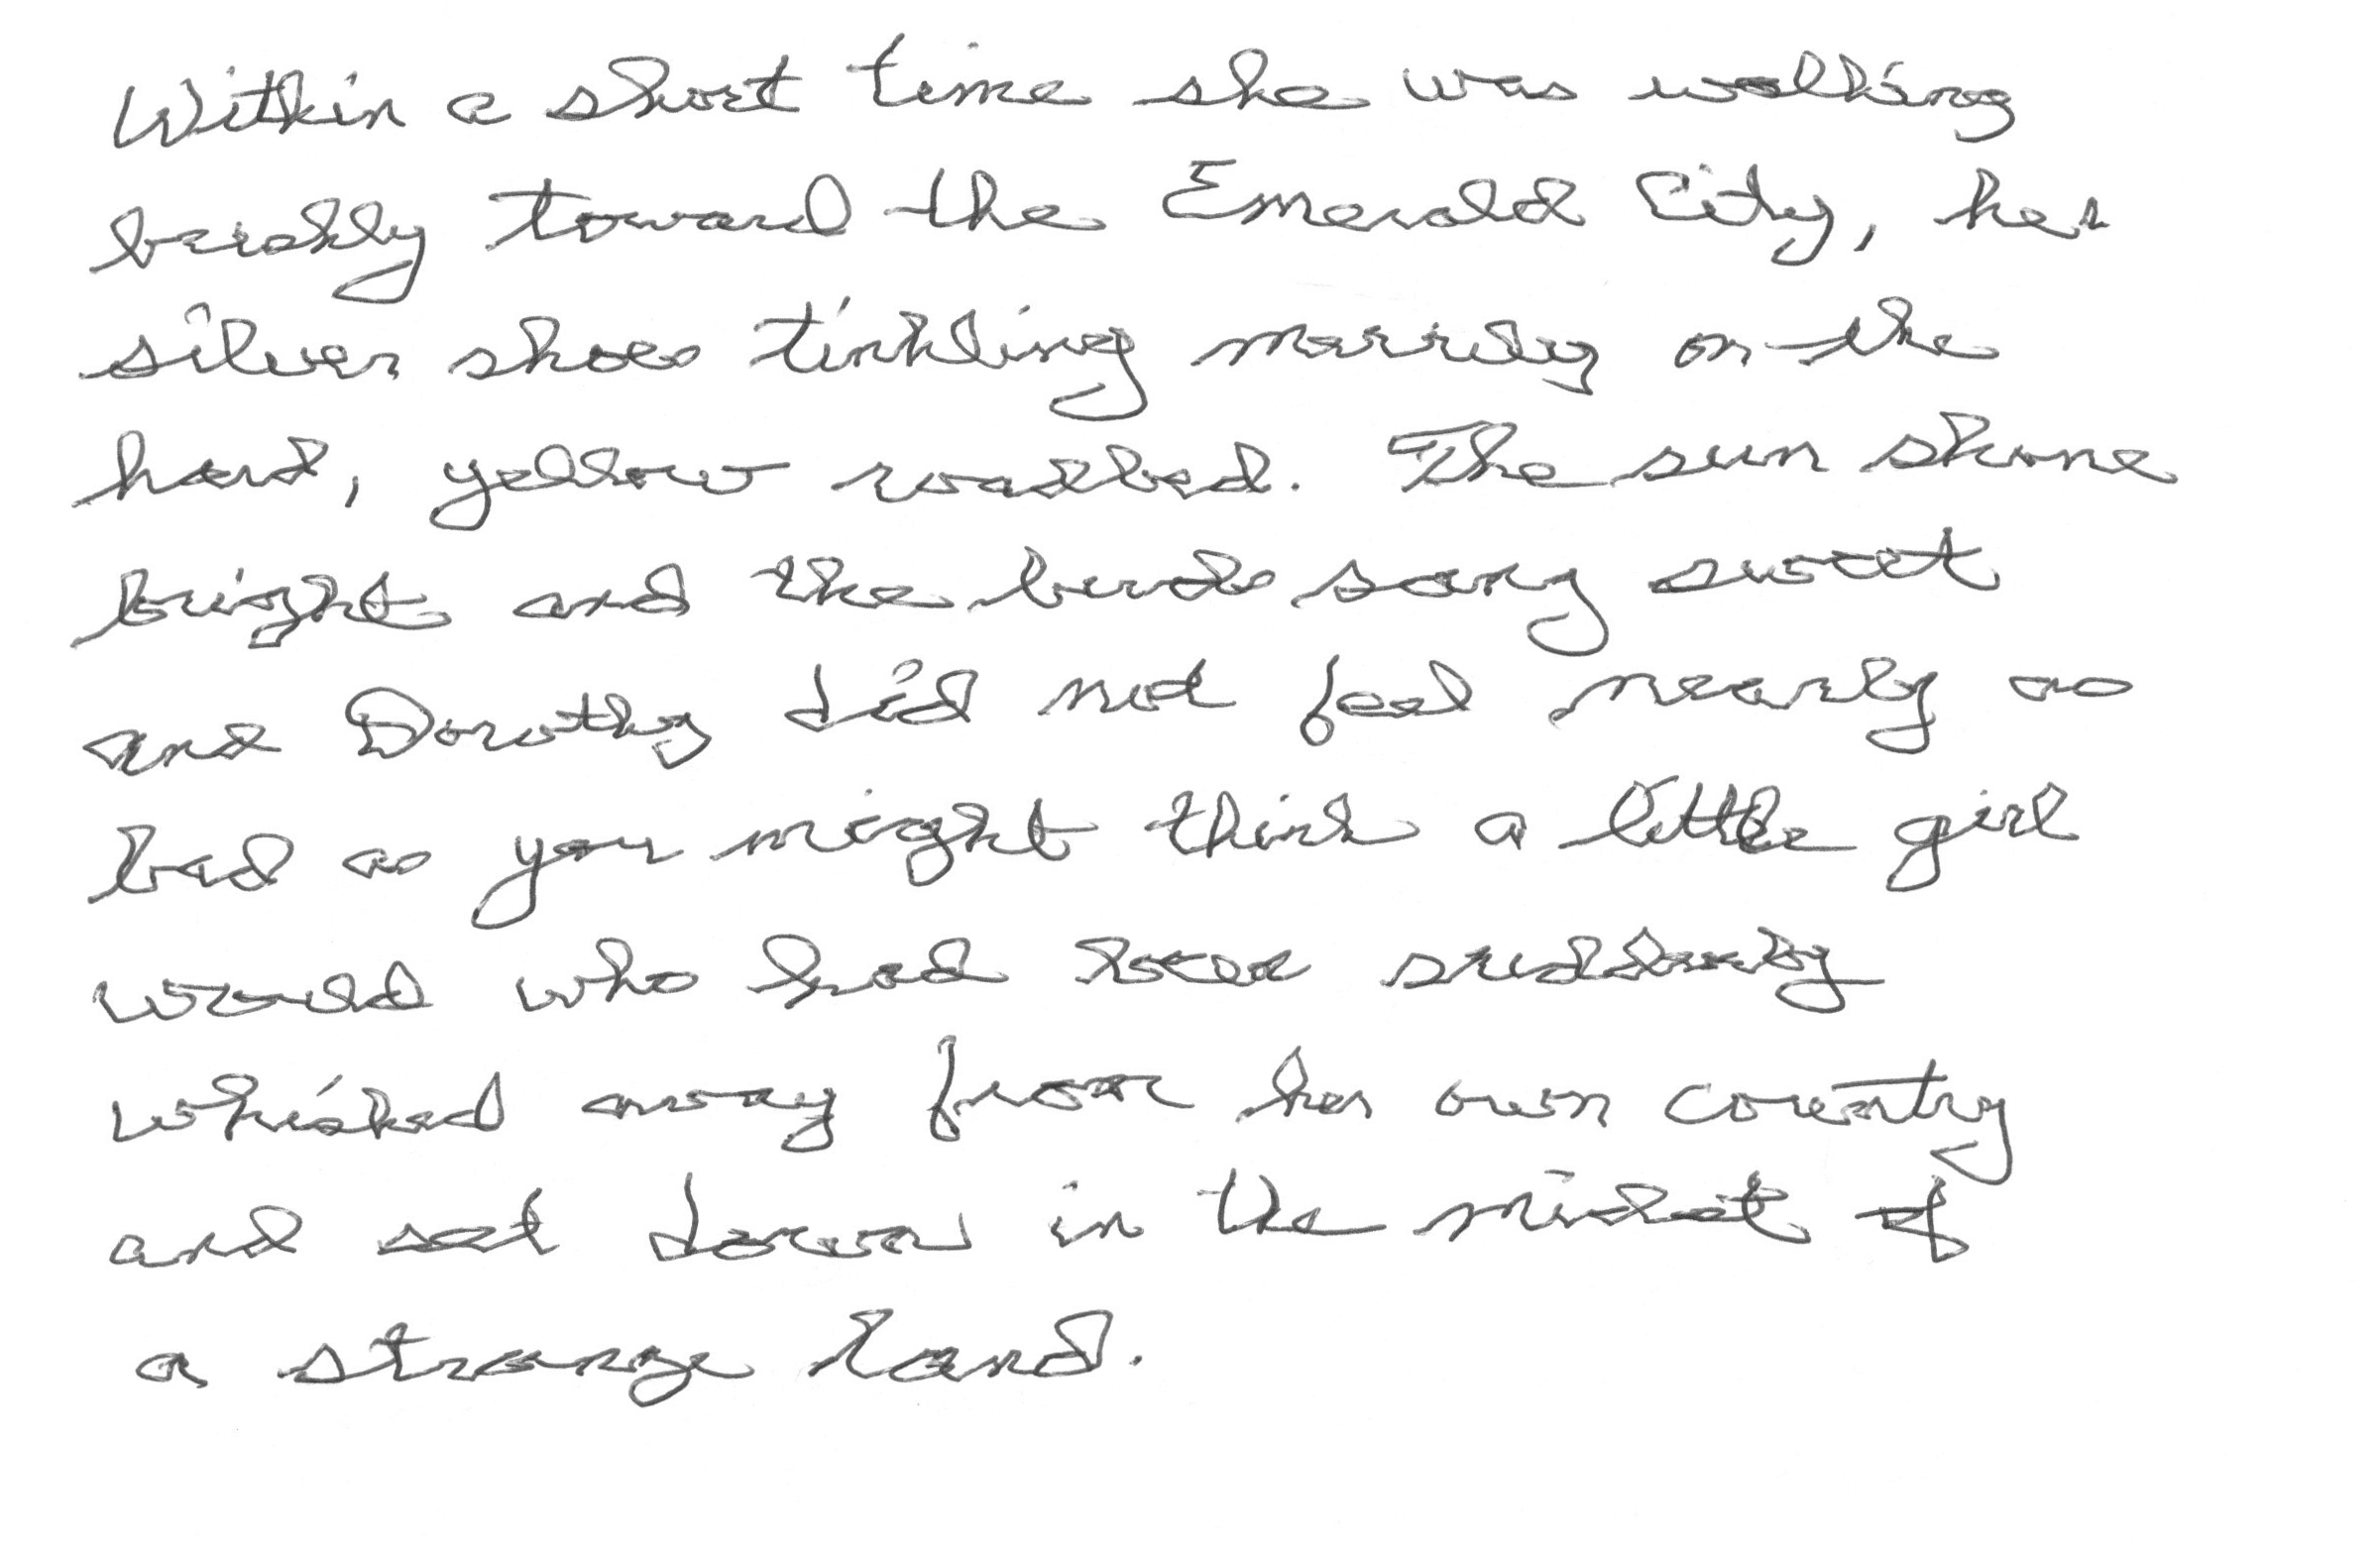 Within a short time she was walking
briskly toward the Emerald City, her
silver shoes tinkling merrily on the
hard, yellow roadbed. The sun shone
bright and the birds sang sweet
and Dorothy did not feel nearly as
bad as you might think a little girl
would who had been suddenly
whisked away from her own country
and set down in the midst of
a strange land.